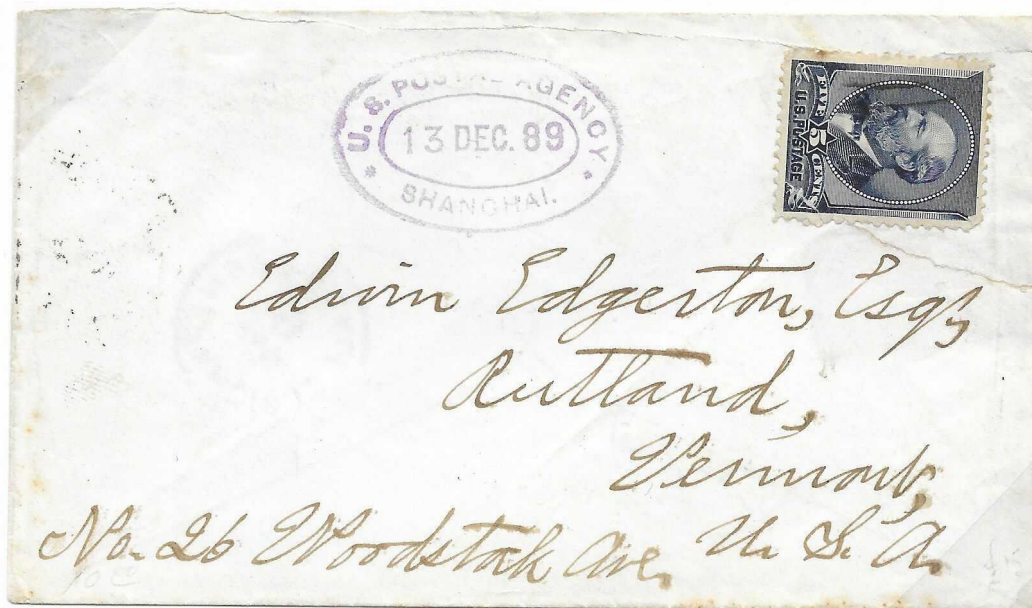 U. S. POSTAL AGENCY
13 DEC. 89
SHANGHAI.
U.S. POSTAGE
FIVE 5 CENTS
Edwin Edgerton, Esq,
Rutland,
Vermont,
No. 26 Woodstock Ave. U. S. A.